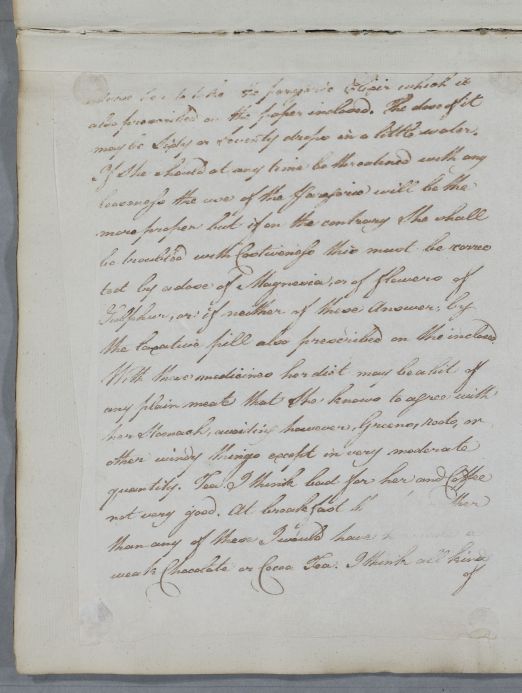 to take the paregoric Elixir which is
also prescribed on the paper inclosed. The dose of it
may be Sixty or Seventy drops in a little water.
If She should at any time be threatened with any
looseness the use of the Paregoric will be the
more proper but if on the contrary She shall
be troubled with Costiveness this must be correc
ted by a dose of Magnesia, or of flowers of
Sulphur, or if neither of these Answer, by
the laxative pill also prescribed on the inclosed
With these medicines her diet may be a bit of
any plain meat that She knows to agree with
her Stomach, avoiding however, Greens, roots, or
other windy things except in very moderate
quantity. Tea I think bad for her and Coffee
not very good. At breakfast ther
than any of these I would have a
weak Chocolate or Cocoa Tea. I think all kind
of